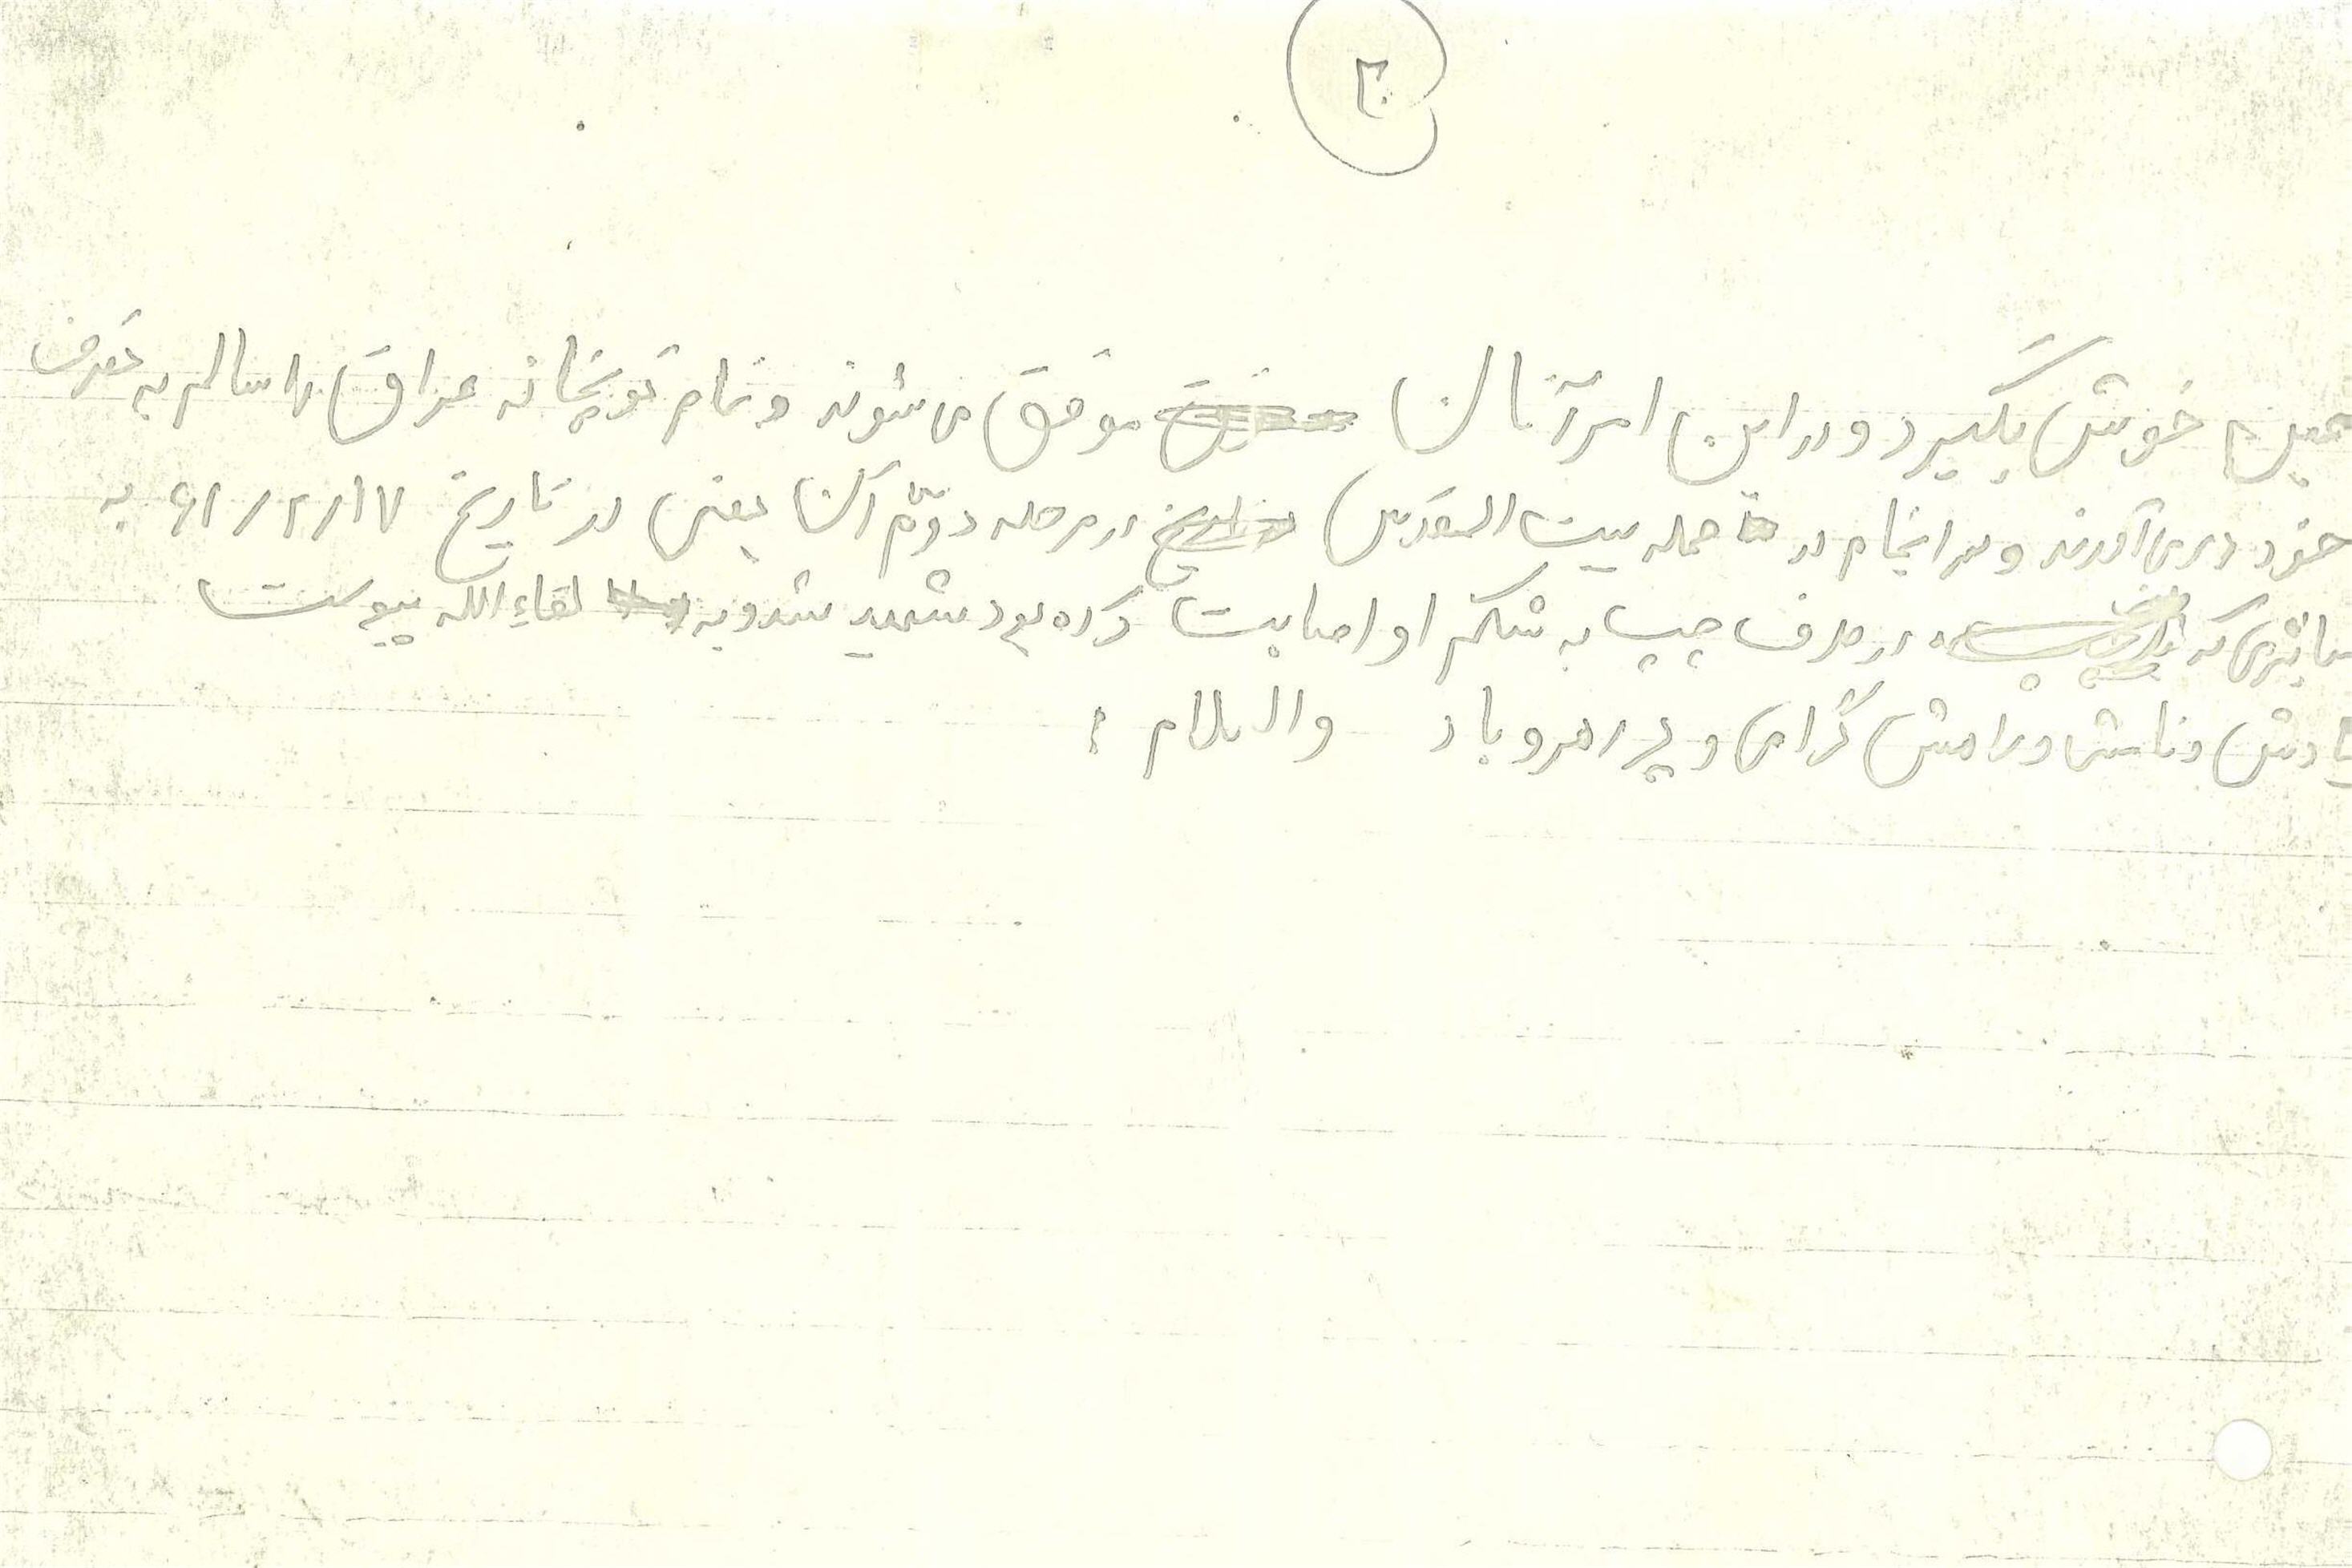 ۳
خویش بگیرد و در این امر آنان موفق می شوند و تمام توپخانه عراق را سالم به تصرف
خود در می آورند و سرانجام در حمله بیت المقدس در مرحله دوّم آن یعنی در تاریخ ۶۱/۲/۱۷ به
که از طرف چپ به شکم او اصابت کرده بود شهید شد و به لقاءِ الله پیوست
یادش و نامش و راهش گرامی و پر رهرو باد والسلام